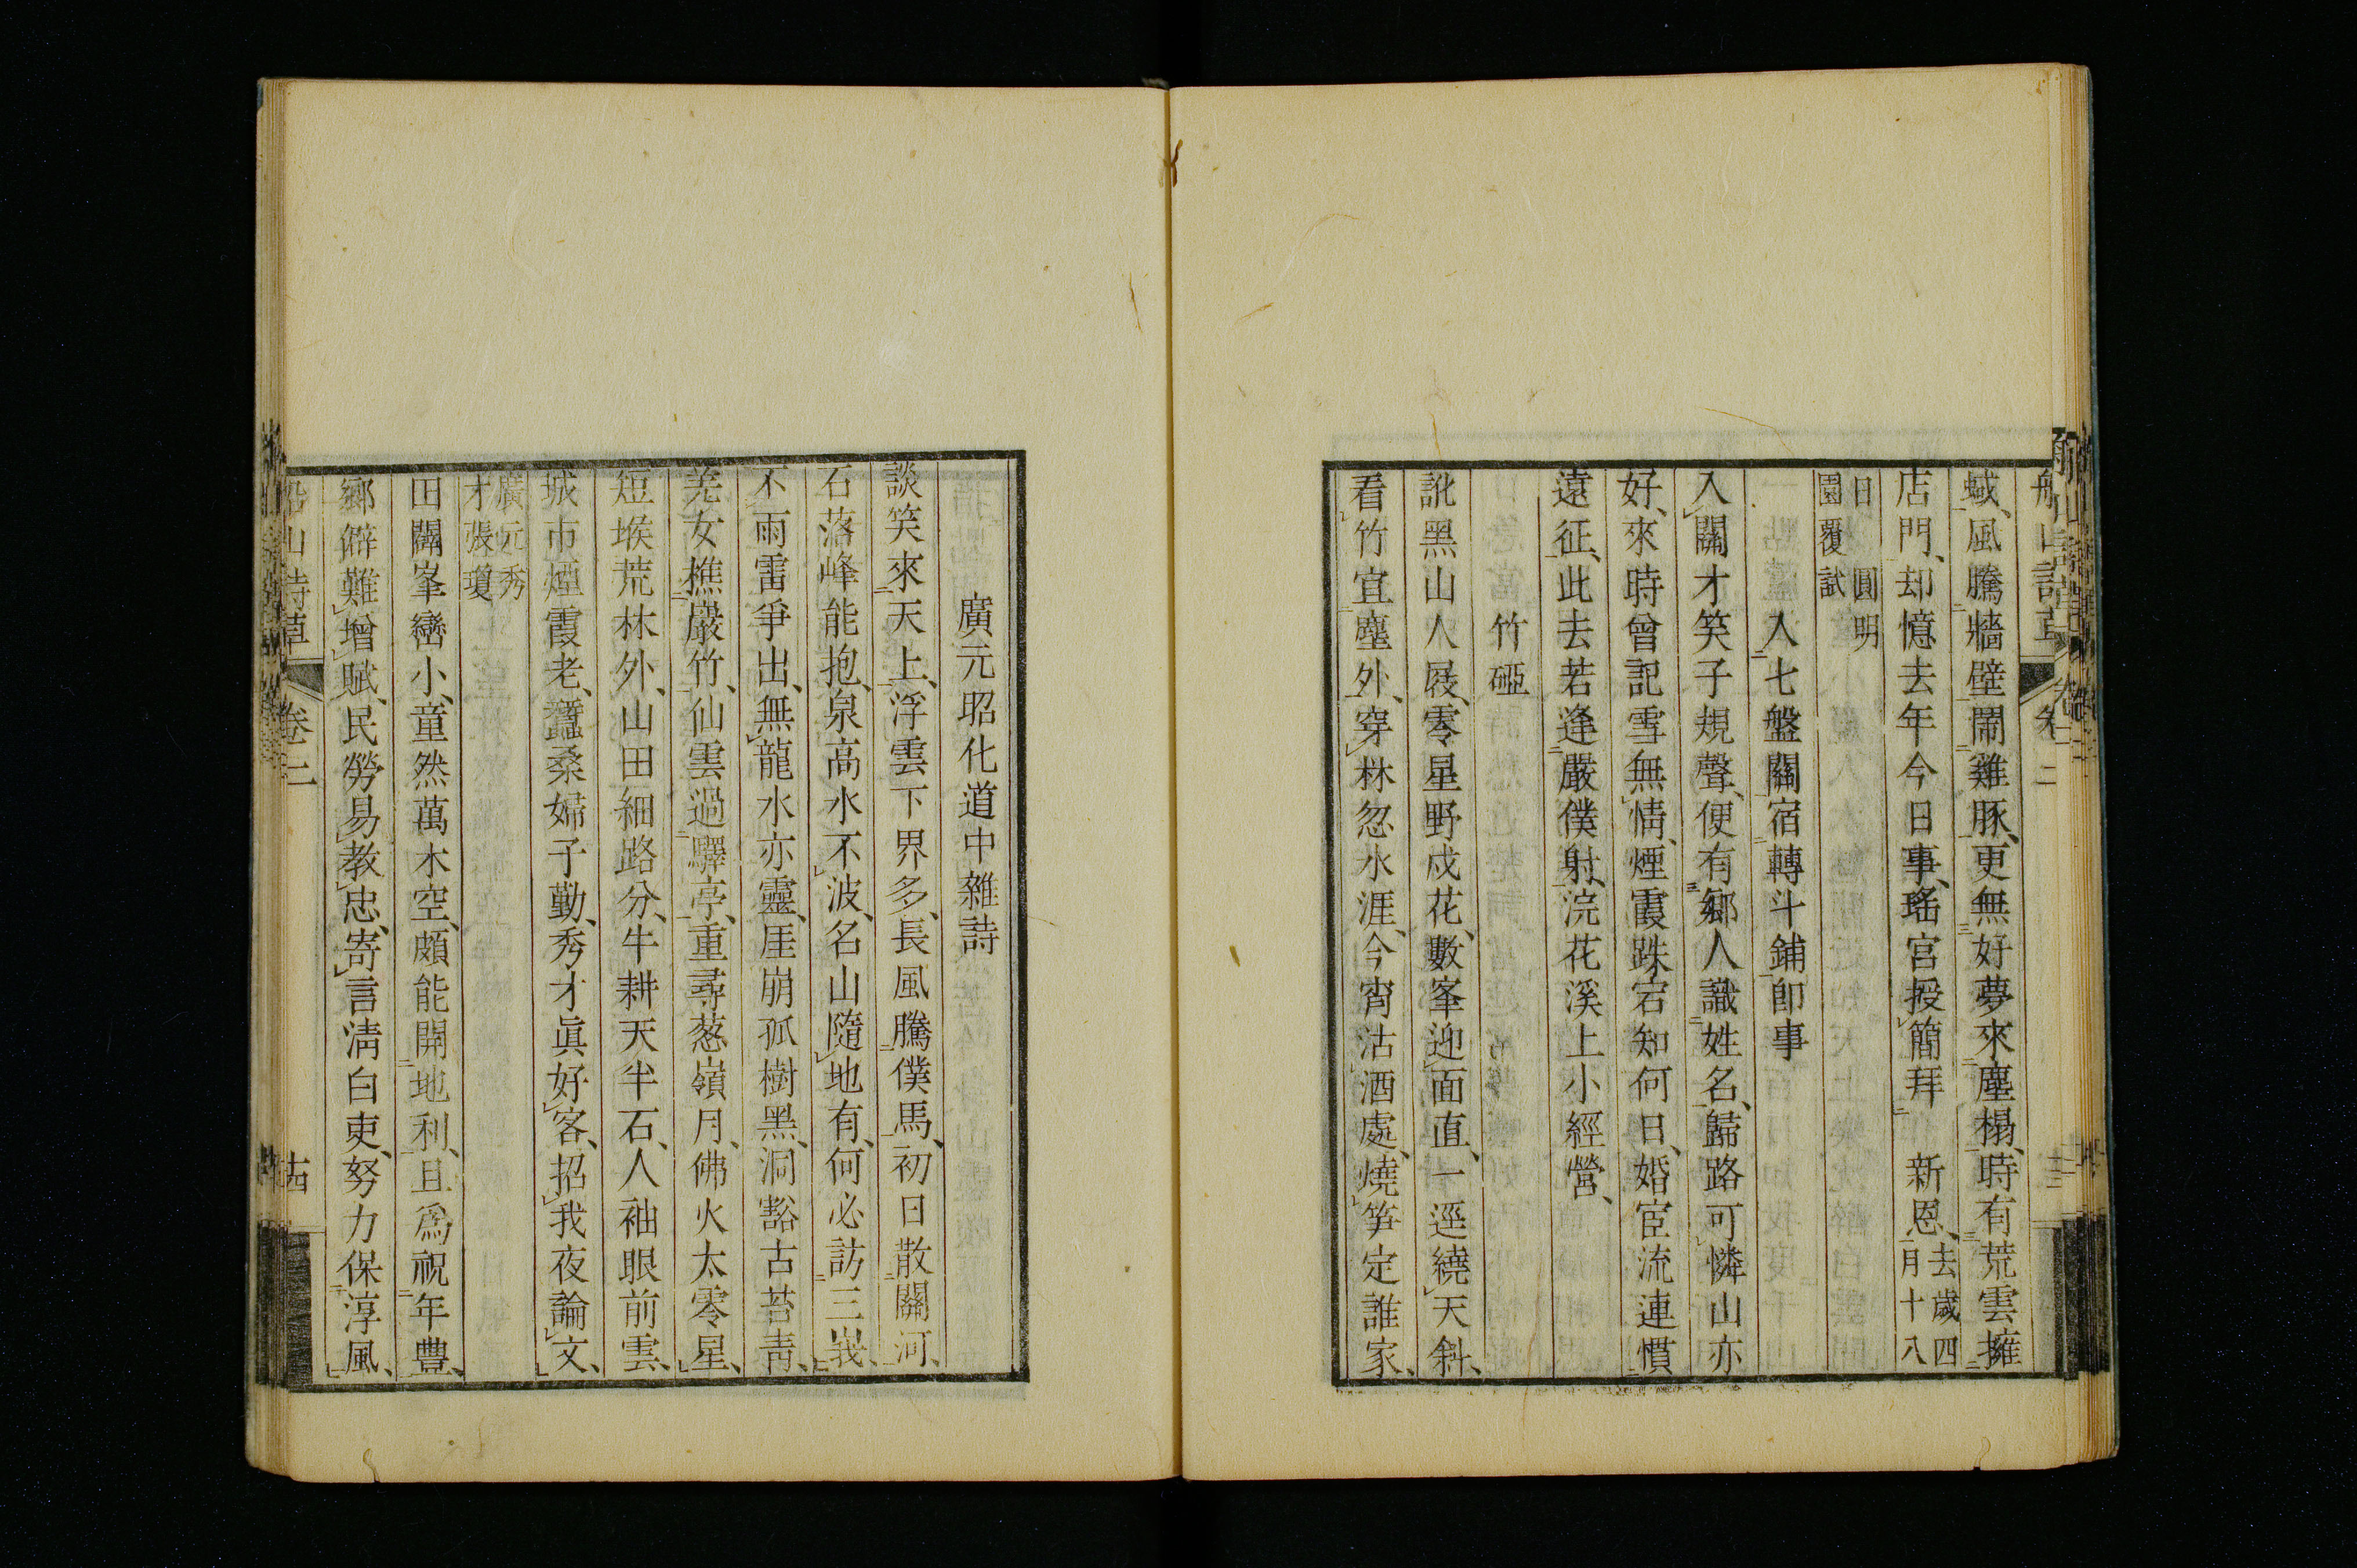 船山詩草 卷二
蜮、風騰牆壁鬧雞豚、更無好夢來塵榻、時有荒雲擁
店門、却憶去年今日事、瑤宮授簡拜 新恩、去歲四月十八
日 圓明園覆試
入七盤關宿轉斗鋪即事
入關才笑子規聲、便有鄉人識姓名、歸路可憐山亦
好、來時曾記雪無情、煙霞跌宕知何日、婚宦流連慣
遠征、此去若逢嚴僕射、浣花溪上小經營、
竹硾
訛黑山人屐、零星野戍花、數峯迎面直、一逕繞天斜、
看竹宜塵外、穿林忽水涯、今宵沽酒處、燒笋定誰家、
廣元昭化道中雜詩
談笑來天上、浮雲下界多、長風騰僕馬、初日散關河、
石落峰能抱、泉高水不波、名山隨地有、何必訪三峩、
不雨雷爭出、無龍水亦靈、厓崩孤樹黑、洞豁古苔靑、
羌女樵巖竹、仙雲過驛亭、重尋葱嶺月、佛火太零星、
短堠荒林外、山田細路分、牛耕天半石、人袖眼前雲、
城市煙霞老、蠶桑婦子勤、秀才眞好客、招我夜論文、
廣元秀才張瓊
田闢峯巒小、童然萬木空、頗能開地利、且爲祝年豐、
鄉僻難增賦、民勞易教忠、寄言淸白吏、努力保淳風、
船山詩草 卷二 十四